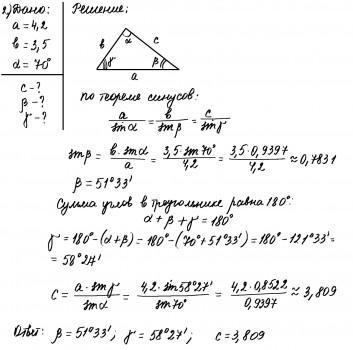 2) Дано:
a = 4,2
b = 3,5
α = 70°
c - ?
β - ?
γ - ?
Решение:
b α c
γ β
a
по теореме синусов:
a/sinα = b/sinβ = c/sinγ
sinβ = b·sinα/a = 3,5·sin70°/4,2 = 3,5·0,9397/4,2 ≈ 0,7831
β = 51°33'
Сумма углов в треугольнике равна 180°:
α + β + γ = 180°
γ = 180° - (α+β) = 180° - (70° + 51°33') = 180° - 121°33' =
= 58°27'
c = a·sinγ/sinα = 4,2·sin58°27'/sin70° = 4,2·0,8522/0,9397 ≈ 3,809
Ответ: β = 51°33'; γ = 58°27'; c = 3,809